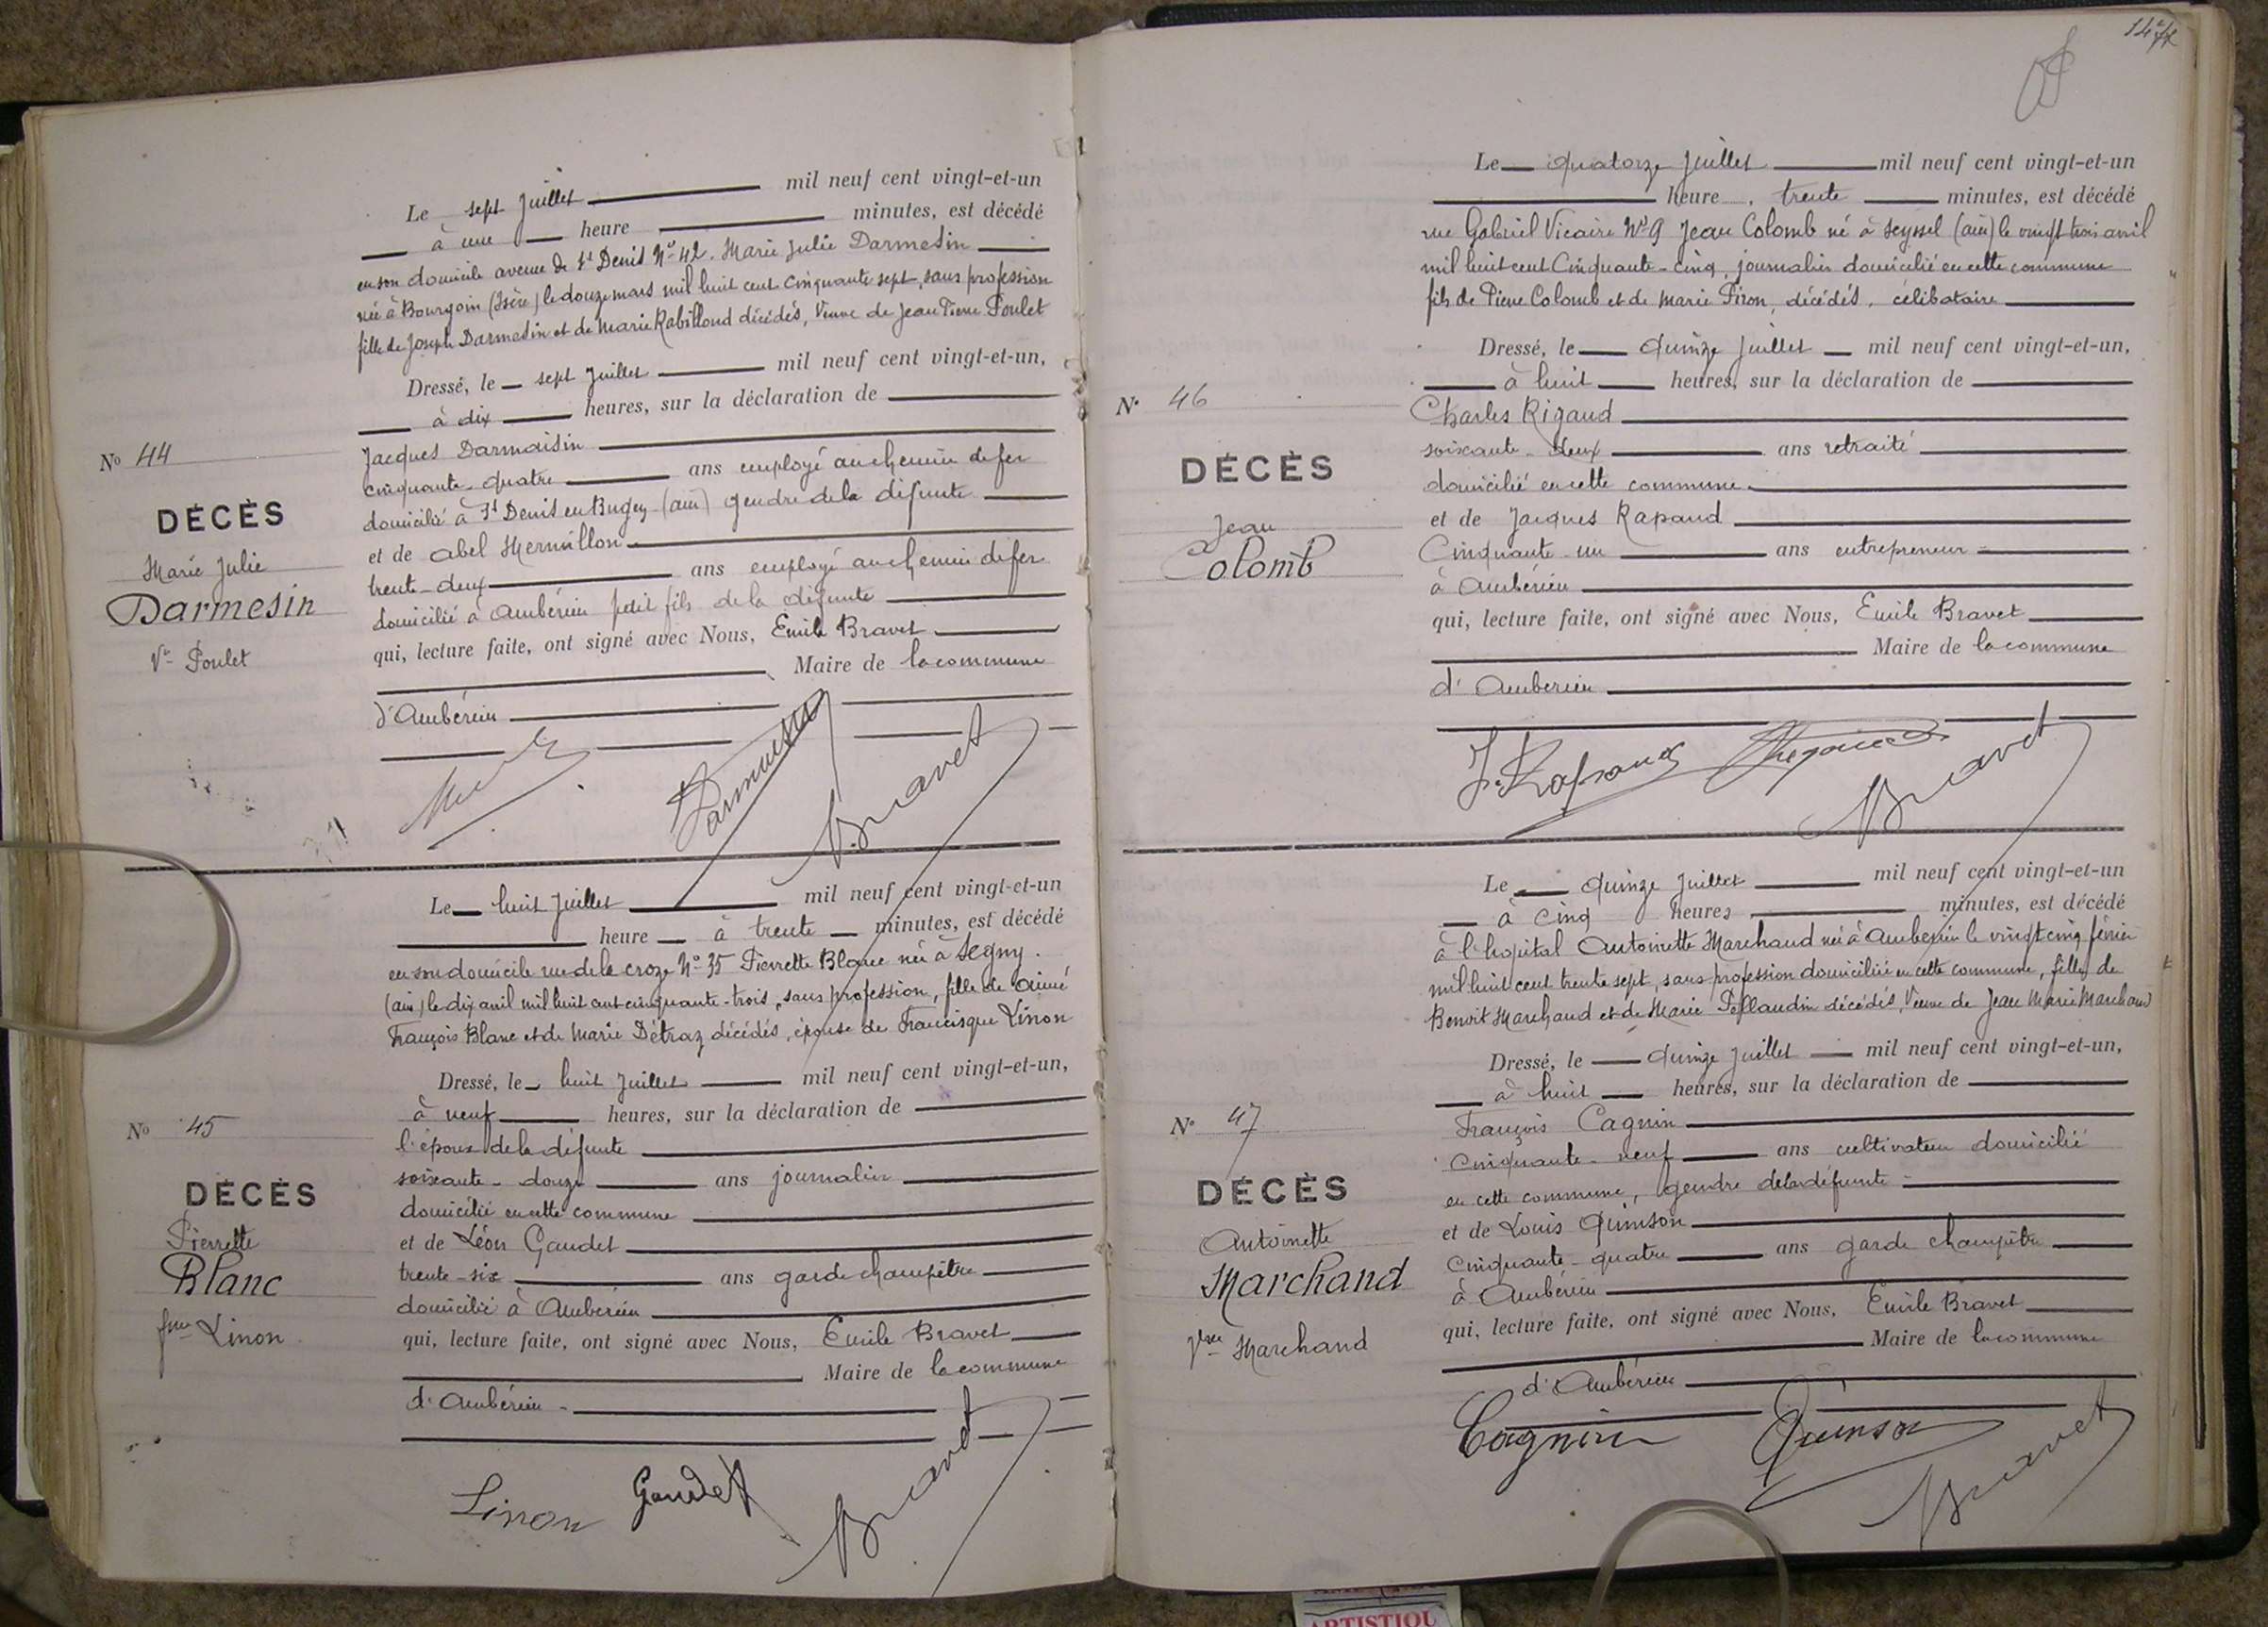 Le sept Juillet mil neuf cent vingt-et-un
à une heure minutes, est décédé
en son domicile avenue de St Denis No 42. Marie Julie Darmesin
née à Bourgoin (Isère) le douze mars mil huit cent cinquante sept, sans profession
fille de Joseph Darmesin et de Marie Rabilloud décédés, Veuve de Jean Pierre Poulet
Dressé, le sept Juillet mil neuf cent vingt-et-un,
à dix heures, sur la déclaration de
No 44
DÉCÈS
Marie Julie
Darmesin
Ve Poulet
Jacques Darmaisin
cinquante-quatre ans employé au chemin de fer
domicilié à St Denis en Bugey (ain) gendre de la défunte
et de abel Mermillon
trente-deux ans employé au chemin de fer
domicilié à Ambérieu petit fils de la défunte
qui, lecture faite, ont signé avec Nous, Emile Bravet
Maire de la commune
d'Ambérieu
Bravet
Le huit Juillet mil neuf cent vingt-et-un
heure à trente minutes, est décédé
en son domicile rue de la croze No 35 Pierrette Blanc née à Segny.
(ain) le dix avril mil huit cent cinquante-trois, sans profession, fille de Aimé
François Blanc et de Marie Détraz décédés, épouse de Francisque Linon
Dressé, le huit Juillet mil neuf cent vingt-et-un,
à neuf heures, sur la déclaration de
No 45
DÉCÈS
Pierrette
Blanc
fme Linon
l'époux de la défunte
soixante-douze ans journalier
domicilié en cette commune
et de Léon Gaudet
trente-six ans garde champêtre
domicilié à Ambérieu
qui, lecture faite, ont signé avec Nous, Emile Bravet
Maire de la commune
d'Ambérieu
Linon Gaudet Bravet
Le quatorze Juillet mil neuf cent vingt-et-un
heure, trente minutes, est décédé
rue Gabriel Vicaire No 9 Jean Colomb né à Seyssel (ain) le vingt trois avril
mil huit cent Cinquante-cinq, journalier domicilié en cette commune
fils de Pierre Colomb et de Marie Piron, décédés, célibataire
Dressé, le quinze Juillet mil neuf cent vingt-et-un,
à huit heures, sur la déclaration de
No 46
DÉCÈS
Jean
Colomb
Charles Rigaud
soixante-deux ans retraité
domicilié en cette commune
et de Jacques Rapaud
Cinquante-un ans entrepreneur
à Ambérieu
qui, lecture faite, ont signé avec Nous, Emile Bravet
Maire de la commune
d'Amberieu
Bravet
Le quinze Juillet mil neuf cent vingt-et-un
à cinq heures minutes, est décédé
à l'hopital Antoinette Marchand née à Amberieu le vingt cinq février
mil huit cent trente sept, sans profession domiciliée en cette commune, fille de
Benoit Marchand et de Marie Pellaudin décédés, Veuve de Jean Marie Marchand
Dressé, le quinze Juillet mil neuf cent vingt-et-un,
à huit heures, sur la déclaration de
No 47
DÉCÈS
Antoinette
Marchand
Vve Marchand
François Cagnin
Cinquante-neuf ans cultivateur domicilié
en cette commune, gendre de la défunte
et de Louis Quinson
Cinquante-quatre ans garde champêtre
à Ambérieu
qui, lecture faite, ont signé avec Nous, Emile Bravet
Maire de la commune
d'Ambérieu
Cagnin Quinson Bravet